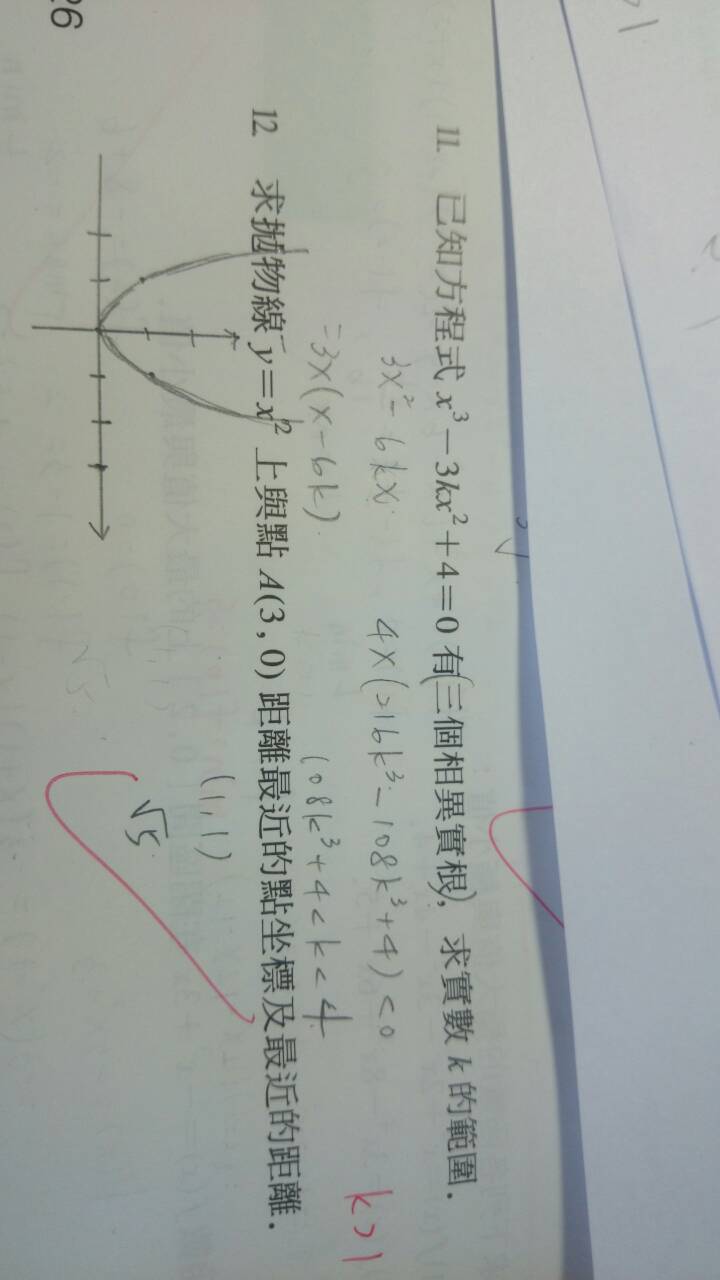 11. 已知方程式 x³－3kx²＋4＝0 有(三個相異實根), 求實數 k 的範圍.
3x²－6kx
4×(216k³－108k³＋4)＜0
＝3x(x－6k)
108k³＋4＜k＜4
k＞1
12. 求拋物線 y＝x² 上與點 A(3 , 0) 距離最近的點坐標及最近的距離.
(1,1)
√5
26